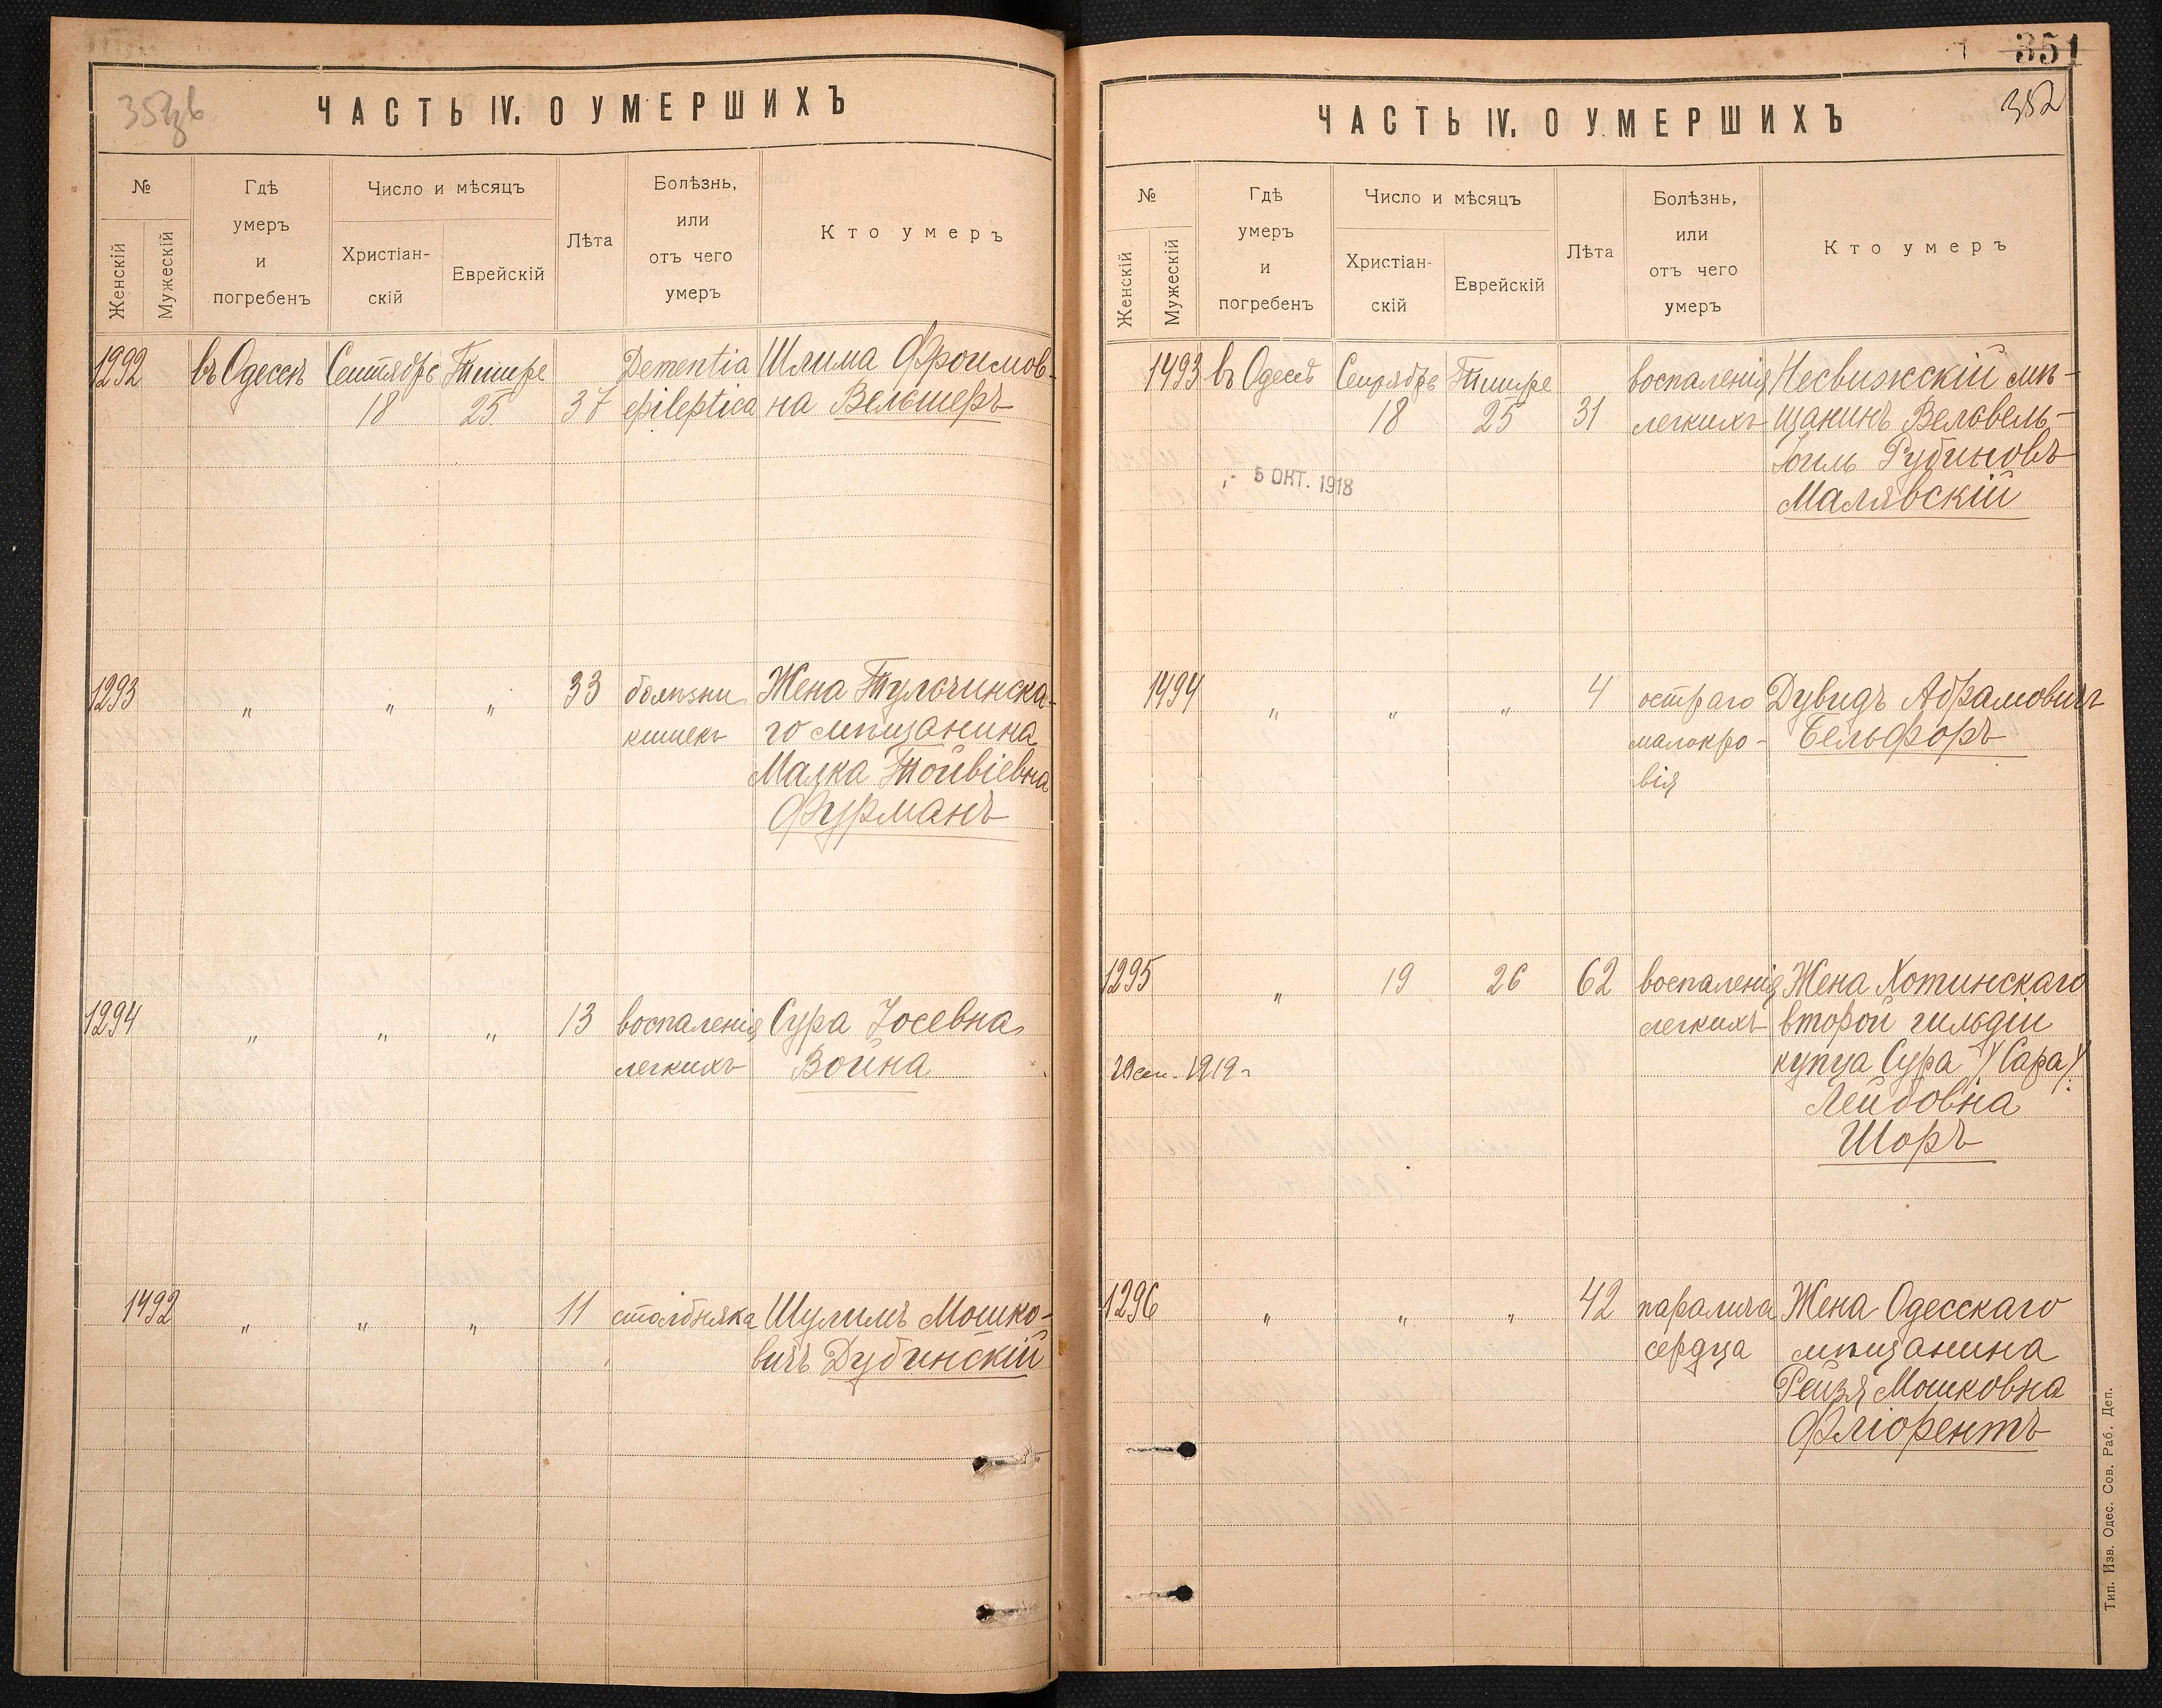 ЧАСТЬ IV. О УМЕРШИХЪ
№
Женскій
Мужескій
Гдѣ
умеръ
и
погребенъ
Число и мѣсяцъ
Христіан-
скій
Еврейскій
Лѣта
Болѣзнь,
или
отъ чего
умеръ
Кто умеръ
1292 въ Одессѣ Сентябрь Тишре Dementia Шлима Фроимов-
18 25 37 epileptica на Вельшеръ
1293 " " " 33 болѣзни Жена Тульчинска-
кишекъ го мѣщанина
Малка Тойвіевна
Фурманъ
1294 " " " 13 воспаленія Сура Іосевна
легкихъ Война
1492 " " " 11 столбняка Шулимъ Мошко-
вичъ Дубинскій
351
352
ЧАСТЬ IV. О УМЕРШИХЪ
№
Женскій
Мужескій
Гдѣ
умеръ
и
погребенъ
Число и мѣсяцъ
Христіан-
скій
Еврейскій
Лѣта
Болѣзнь,
или
отъ чего
умеръ
Кто умеръ
1493 въ Одессѣ Сентябрь Тишре воспаленія Несвижскій мѣ-
18 25 31 легкихъ щанинъ Велвель-
Іоиль Рубиновъ
5 ОКТ. 1918
Малявскій
1494 " " " 4 остраго Дувидъ Абрамовичъ
малокро- Бельфоръ
вія
1295 " 19 26 62 воспаленія Жена Хотинскаго
легкихъ второй гильдіи
1919 г. купца Сура /Сара/
Лейбовна
Шоръ
1296 " " " 42 паралича Жена Одесскаго
сердца мѣщанина
Рейзя Мошковна
Фліорентъ
Тип. Изв. Одес. Сов. Раб. Деп.